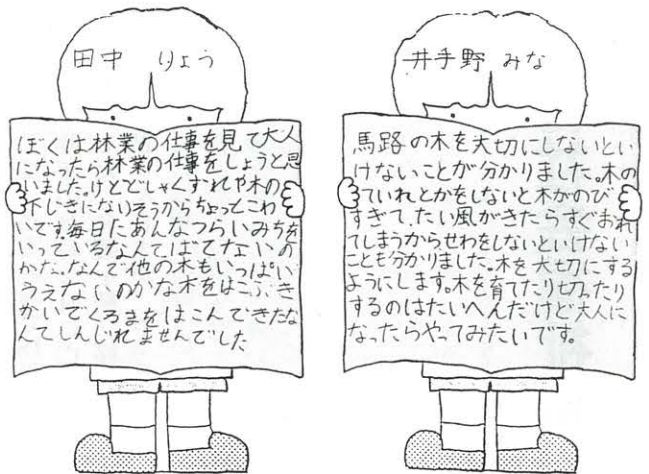 田中 りょう
ぼくは林業の仕事を見て大人
になったら林業の仕事をしようと思
いました。けどどしゃくずれや木の
下じきにないそうからちょっとこわ
いです。毎日たあんなつらいみちを
いっているなんてばてないの
かな、なんで他の木もいっぱい
うえないのかな木をはこぶき
かいでくるまをはこんできたな
んてしんじれませんでした
井手野 みな
馬路の木を大切にしないとい
けないことが分かりました。木の
ていれとかをしないと木がのび
すぎて、たい風がきたらすぐおれ
てしまうからせわをしないといけない
ことも分かりました。木を大切にする
ようにします。木を育てたり切ったり
するのはたいへんだけど大人に
なったらやってみたいです。